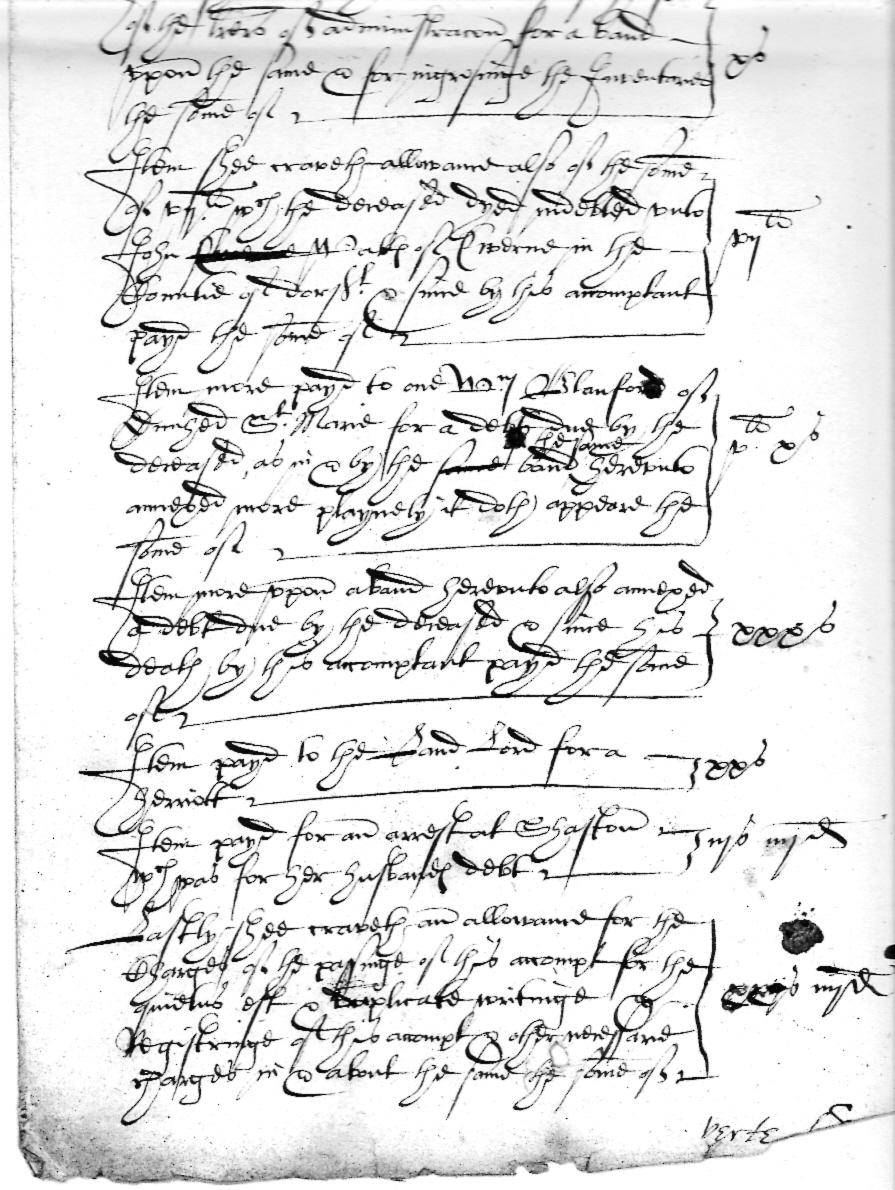 of the lre͠s of administracon for a band
vppon the same & for ingrosinge the Inventorie xs
the some of
Item shee craveth allowance also of the some
of vijli wch the deceased dyed indebted vnto
John Wake of Ewerne in the vijli
Countie of dorst & since by this accomptant
payd the some of
Item more payd to one Wm Blanford of
Quished St. Marie for a debt due by the
the same vli xs
deceased, as in & by the band herevnto
annexed more playnely it doth appeare the
some of
Item more vppon a band herevnto also annexed
a debt due by the deceased & since his xxxs
death by this accomptant payd the some
of
Item payd to the Land Lord for a xxs
herriott
Item payd for an arrest at Shaston iijs iiijd
wch was for her husbands debt
Lastly shee craveth an allowance for the
Charges of the passinge of this accompt for the
quietus est & duplicate writinge & iiijd
Registringe of this accompt & other necessarie
charges in & about the same the some of
verte